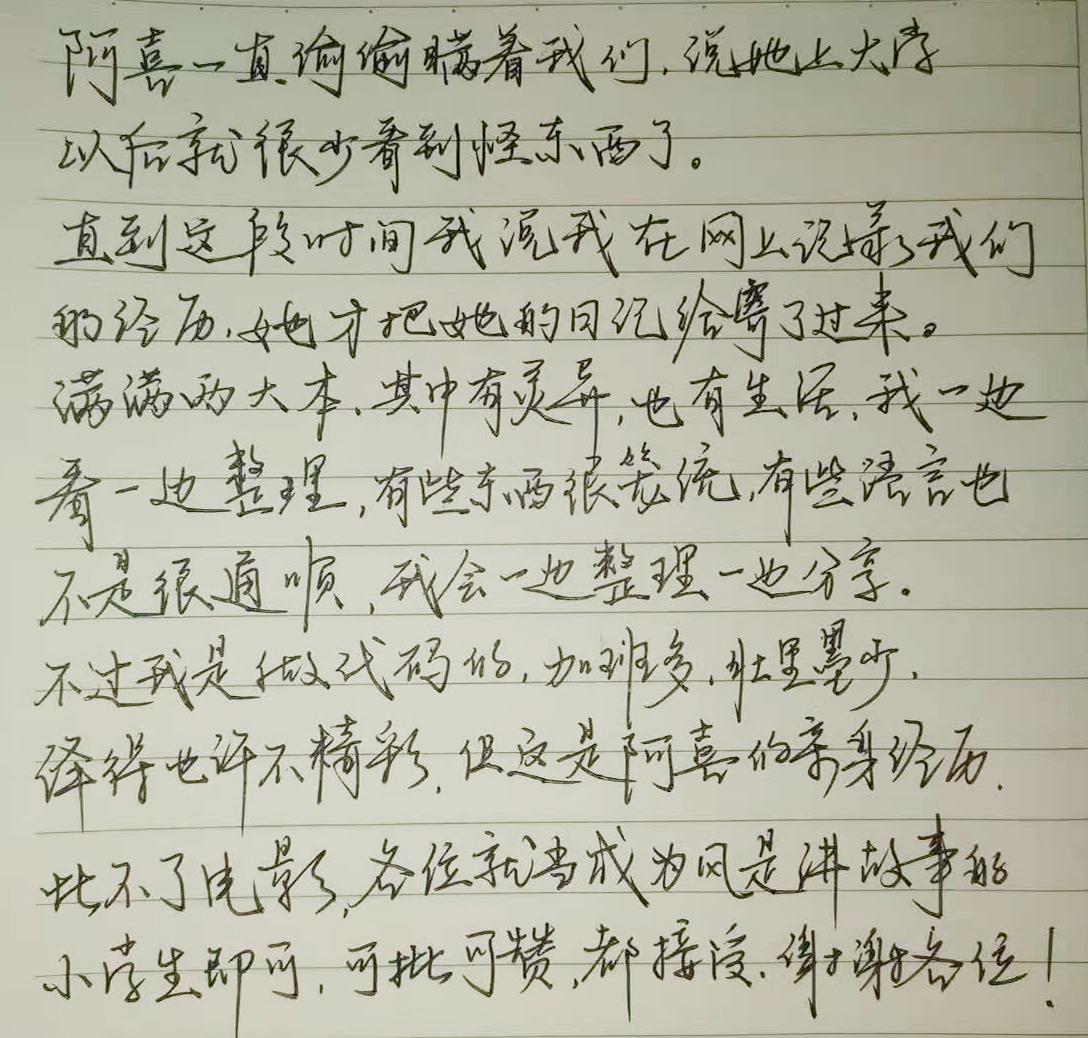 阿喜一直偷偷瞒着我们,说她上大学
以后就很少看到怪东西了。
直到这段时间我说我在网上记录我们
的经历,她才把她的日记给寄了过来。
满满两大本,其中有灵异,也有生活,我一边
看一边整理,有些东西很笼统,有些语言也
不是很通顺,我会一边整理一边分享。
不过我是做代码的,加班多,肚里墨少,
译得也许不精彩,但这是阿喜的亲身经历,
比不了电影,各位就当成为风是讲故事的
小学生即可,可批可赞,都接受,谢谢各位!